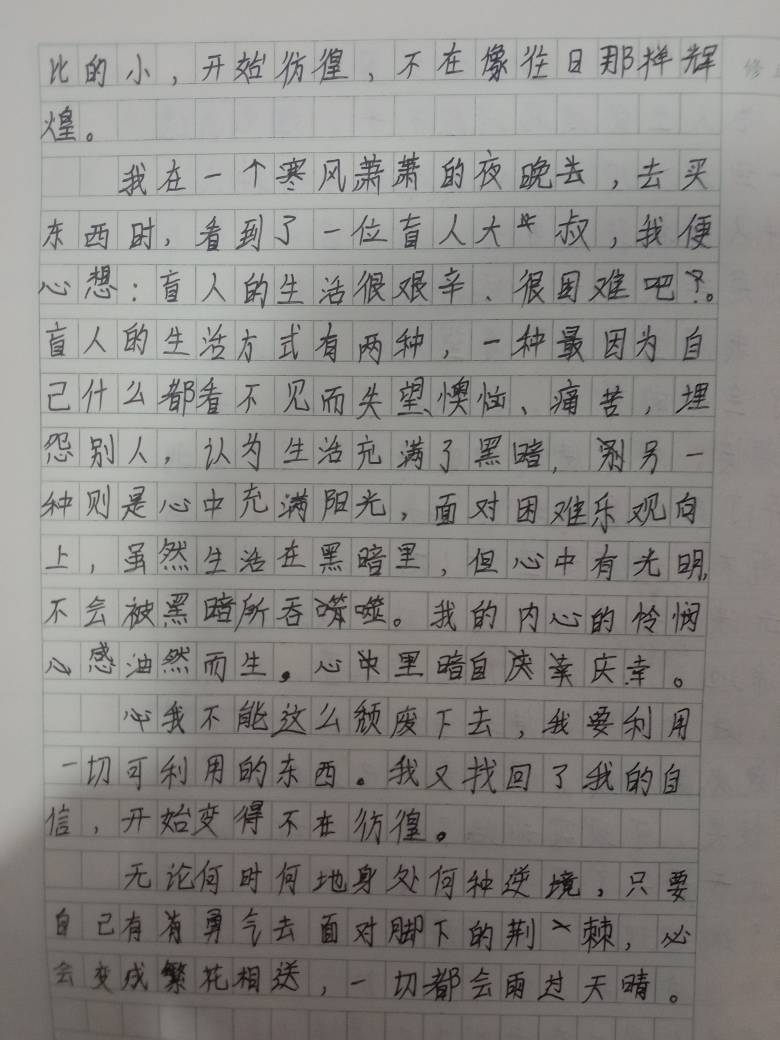 比的小，开始彷徨，不在像往日那样辉
煌。
我在一个寒风萧萧的夜晚去，去买
东西时，看到了一位盲人大叔，我便
心想：盲人的生活很艰辛、很困难吧？。
盲人的生活方式有两种，一种最因为自
己什么都看不见而失望、懊恼、痛苦，埋
怨别人，认为生活充满了黑暗，另一
种则是心中充满阳光，面对困难乐观向
上，虽然生活在黑暗里，但心中有光明，
不会被黑暗所吞噬。我的内心的怜悯
心感油然而生。心中里暗自庆幸庆幸。
我不能这么颓废下去，我要利用
一切可利用的东西。我又找回了我的自
信，开始变得不在彷徨。
无论何时何地身处何种逆境，只要
自己有有勇气去面对脚下的荆棘，必
会变成繁花相送，一切都会雨过天晴。